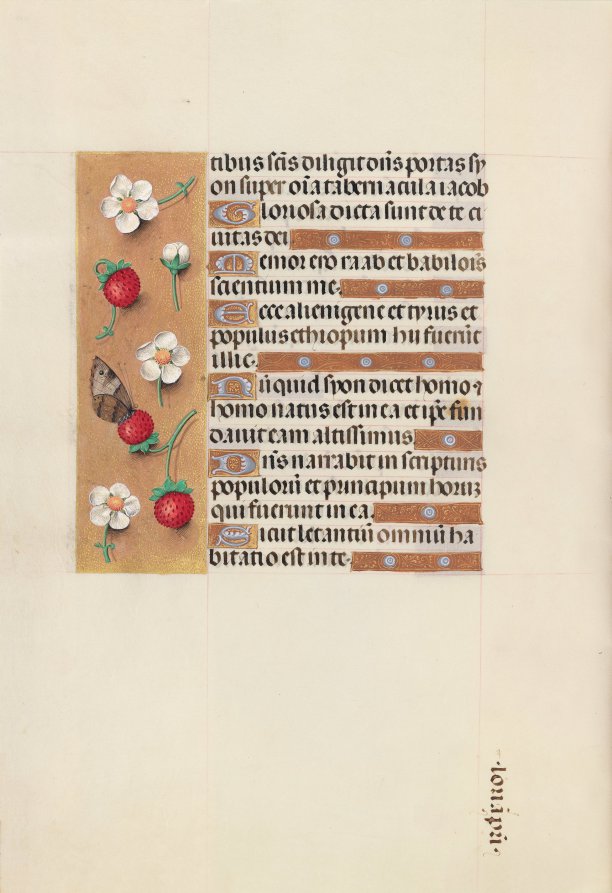 tibus scīs diligit dn̄s portas sy
on super oīa tabernacula iacob
Gloriosa dicta sunt de te ci
uitas dei
Memor ero raab et babilonis
scientium me.
Ecce alienigene et tyrus et
populus ethiopum hii fuerūt
illic.
Nūquid syon dicet homo ⁊
homo natus est in ea et ip̄e fun
dauit eam altissimus
Dn̄s narrabit in scripturis
populorū et principium horū
qui fuerunt in ea.
Sicut letantiū omniū ha
bitatio est in te.